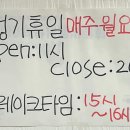 정기휴일 매주 월요
open:11시
close:20
브레이크타임: 15시
~16시